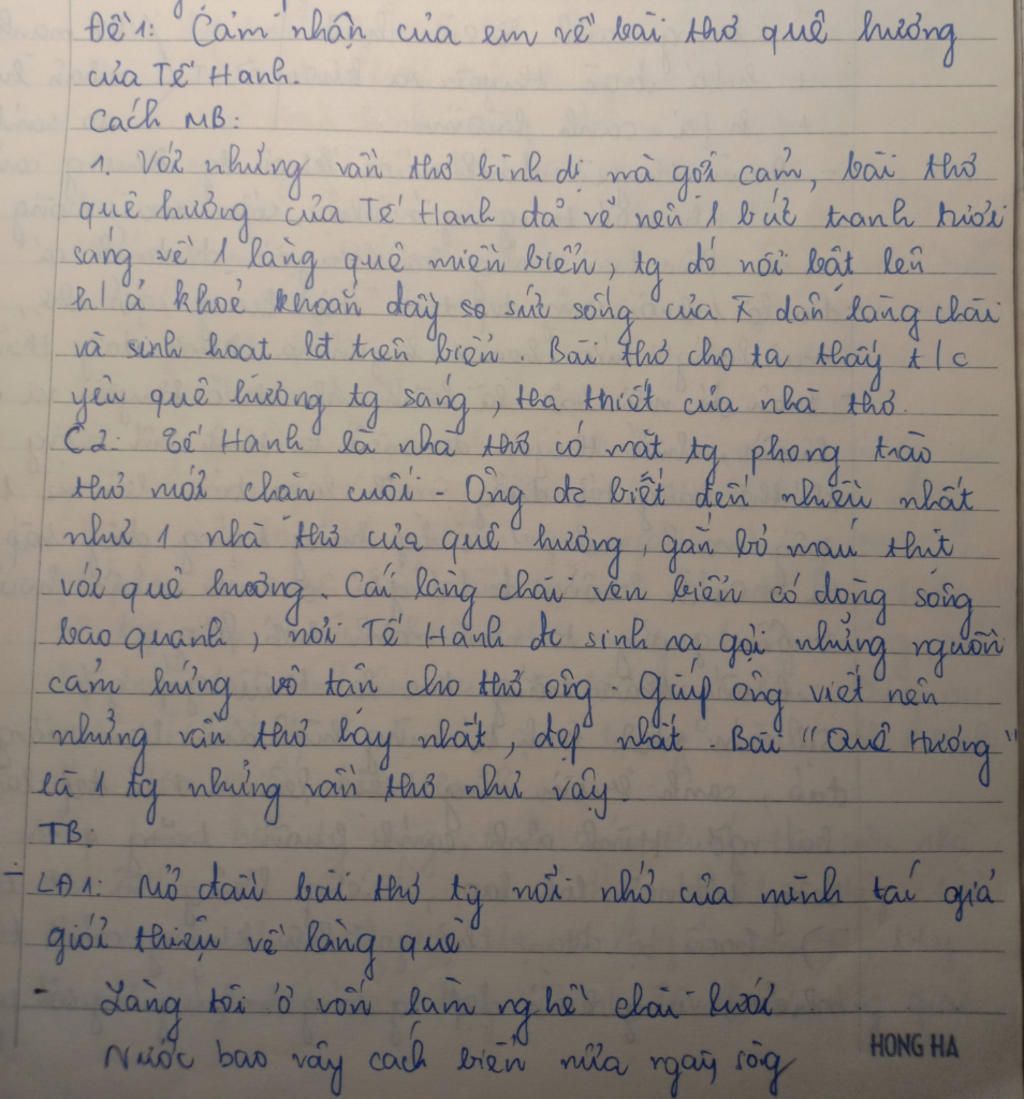 Đề 1: Cảm nhận của em về bài thơ quê hương
của Tế Hanh.
Cách MB:
1. Với những vần thơ bình dị mà gợi cảm, bài thơ
quê hương của Tế Hanh đã vẽ nên 1 bức tranh tươi
sáng về 1 làng quê miền biển, tg đó nổi bật lên
h/ả khoẻ khoắn đầy sức sống của dân làng chài
và sinh hoạt lđ trên biển. Bài thơ cho ta thấy t/c
yêu quê hương tg sáng, tha thiết của nhà thơ.
C2: Tế Hanh là nhà thơ có mặt tg phong trào
thơ mới chặn cuối - Ông đc biết đến nhiều nhất
như 1 nhà thơ của quê hương, gắn bó máu thịt
với quê hương. Cái làng chài ven biển có dòng sông
bao quanh, nơi Tế Hanh đc sinh ra gợi những nguồn
cảm hứng vô tận cho thơ ông. Giúp ông viết nên
những vần thơ hay nhất, đẹp nhất. Bài "Quê Hương"
là 1 tg những vần thơ như vậy.
TB:
- LĐ1: Mở đầu bài thơ tg nỗi nhớ của mình tác giả
giới thiệu về làng quê
- Làng tôi ở vốn làm nghề chài lưới
Nước bao vây cách biển nửa ngày sông
HONG HA